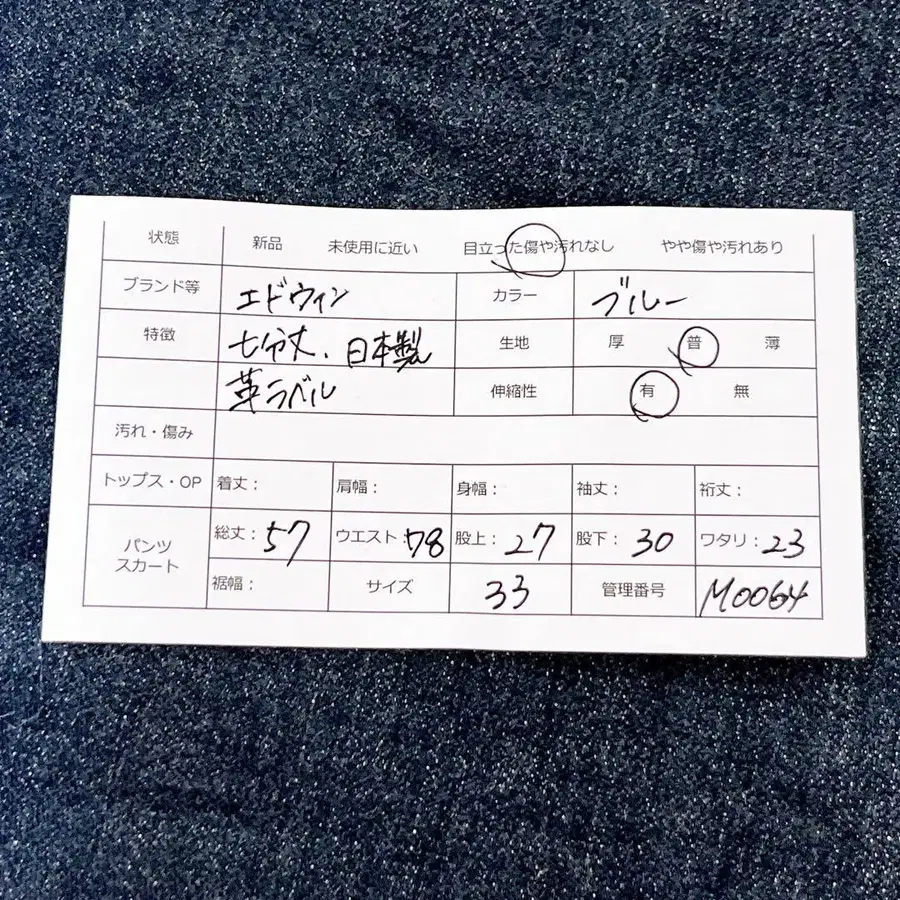 状態 新品 未使用に近い 目立った傷や汚れなし やや傷や汚れあり
ブランド等 エドウィン カラー ブルー
特徴 七分丈、日本製 生地 厚 普 薄
革ラベル 伸縮性 有 無
汚れ・傷み
トップス・OP 着丈: 肩幅: 身幅: 袖丈: 裄丈:
パンツ スカート 総丈:57 ウエスト:78 股上:27 股下:30 ワタリ:23
裾幅: サイズ 33 管理番号 M0064